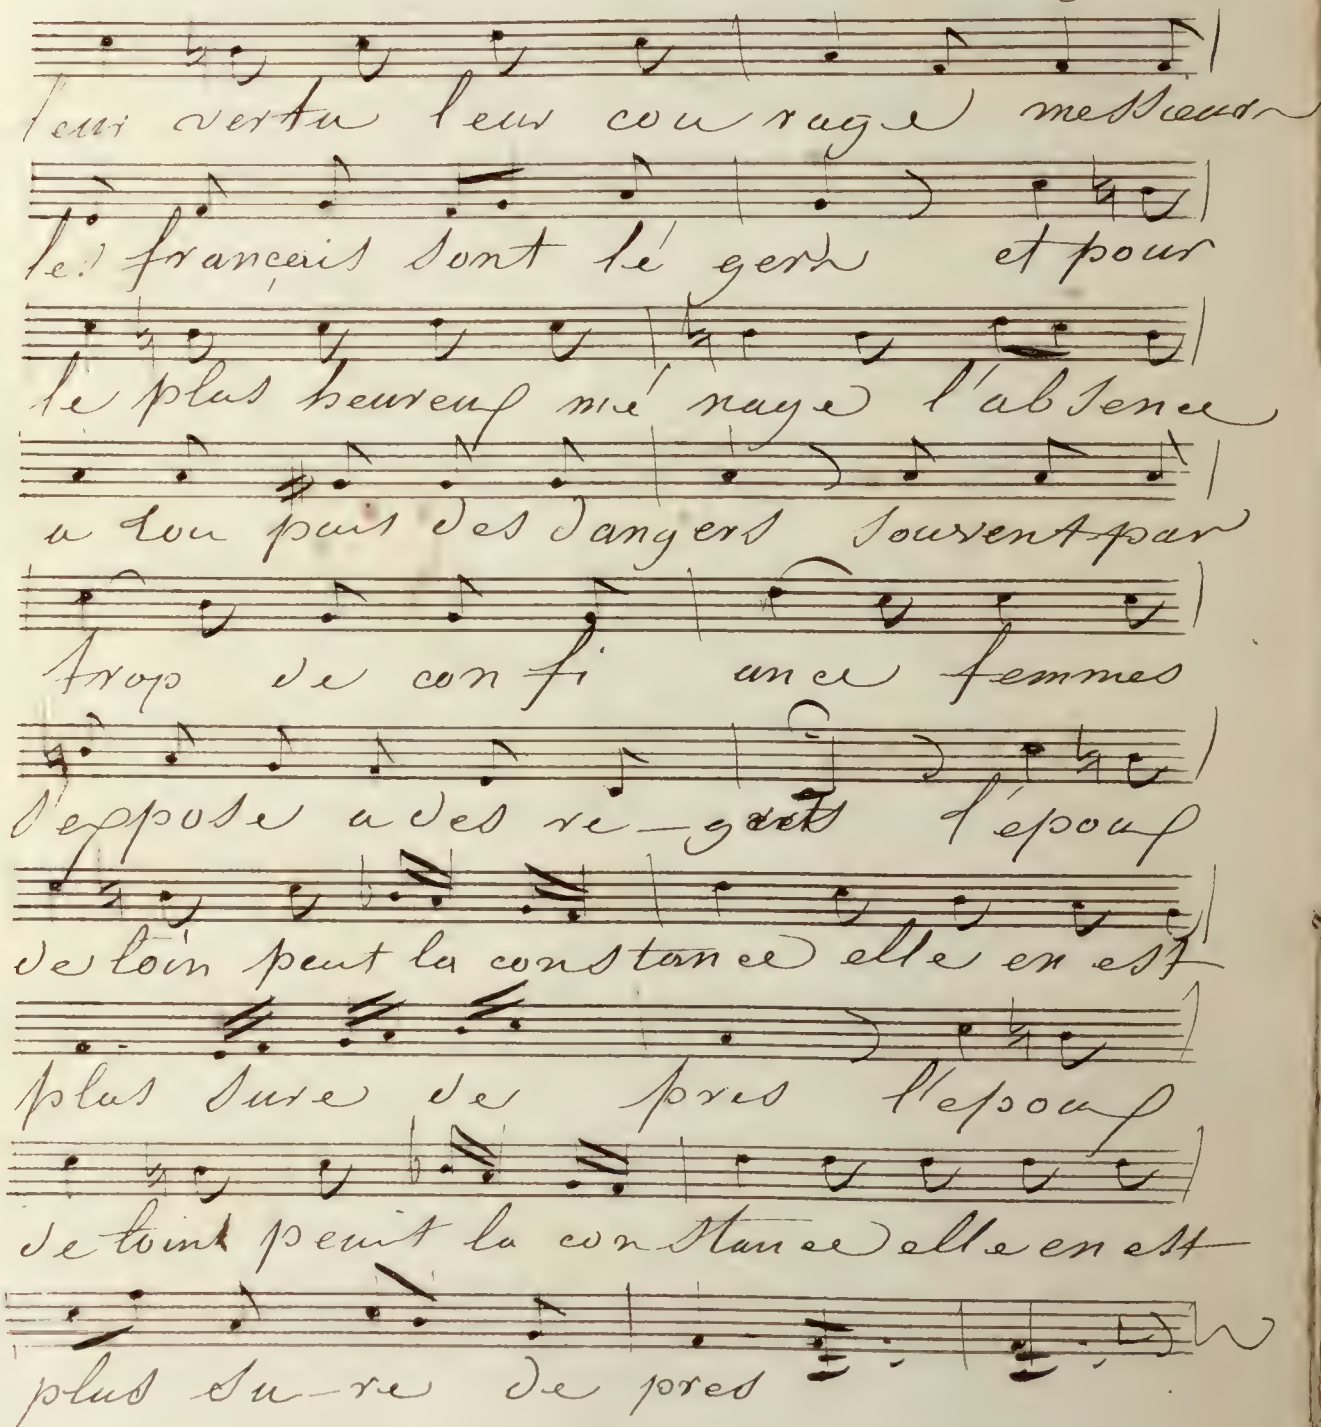 leur vertu leur cou rage messieurs
les français sont lé gers et pour
le plus heureux mé nage l'absence
a tou jours des dangers souvent par
trop de con fi ance femmes
s'expose a des re-grets l'epoux
de loin peut la constance elle en est
plus sure de pres l'epoux
de loin peut la constance elle en est
plus su-re de pres